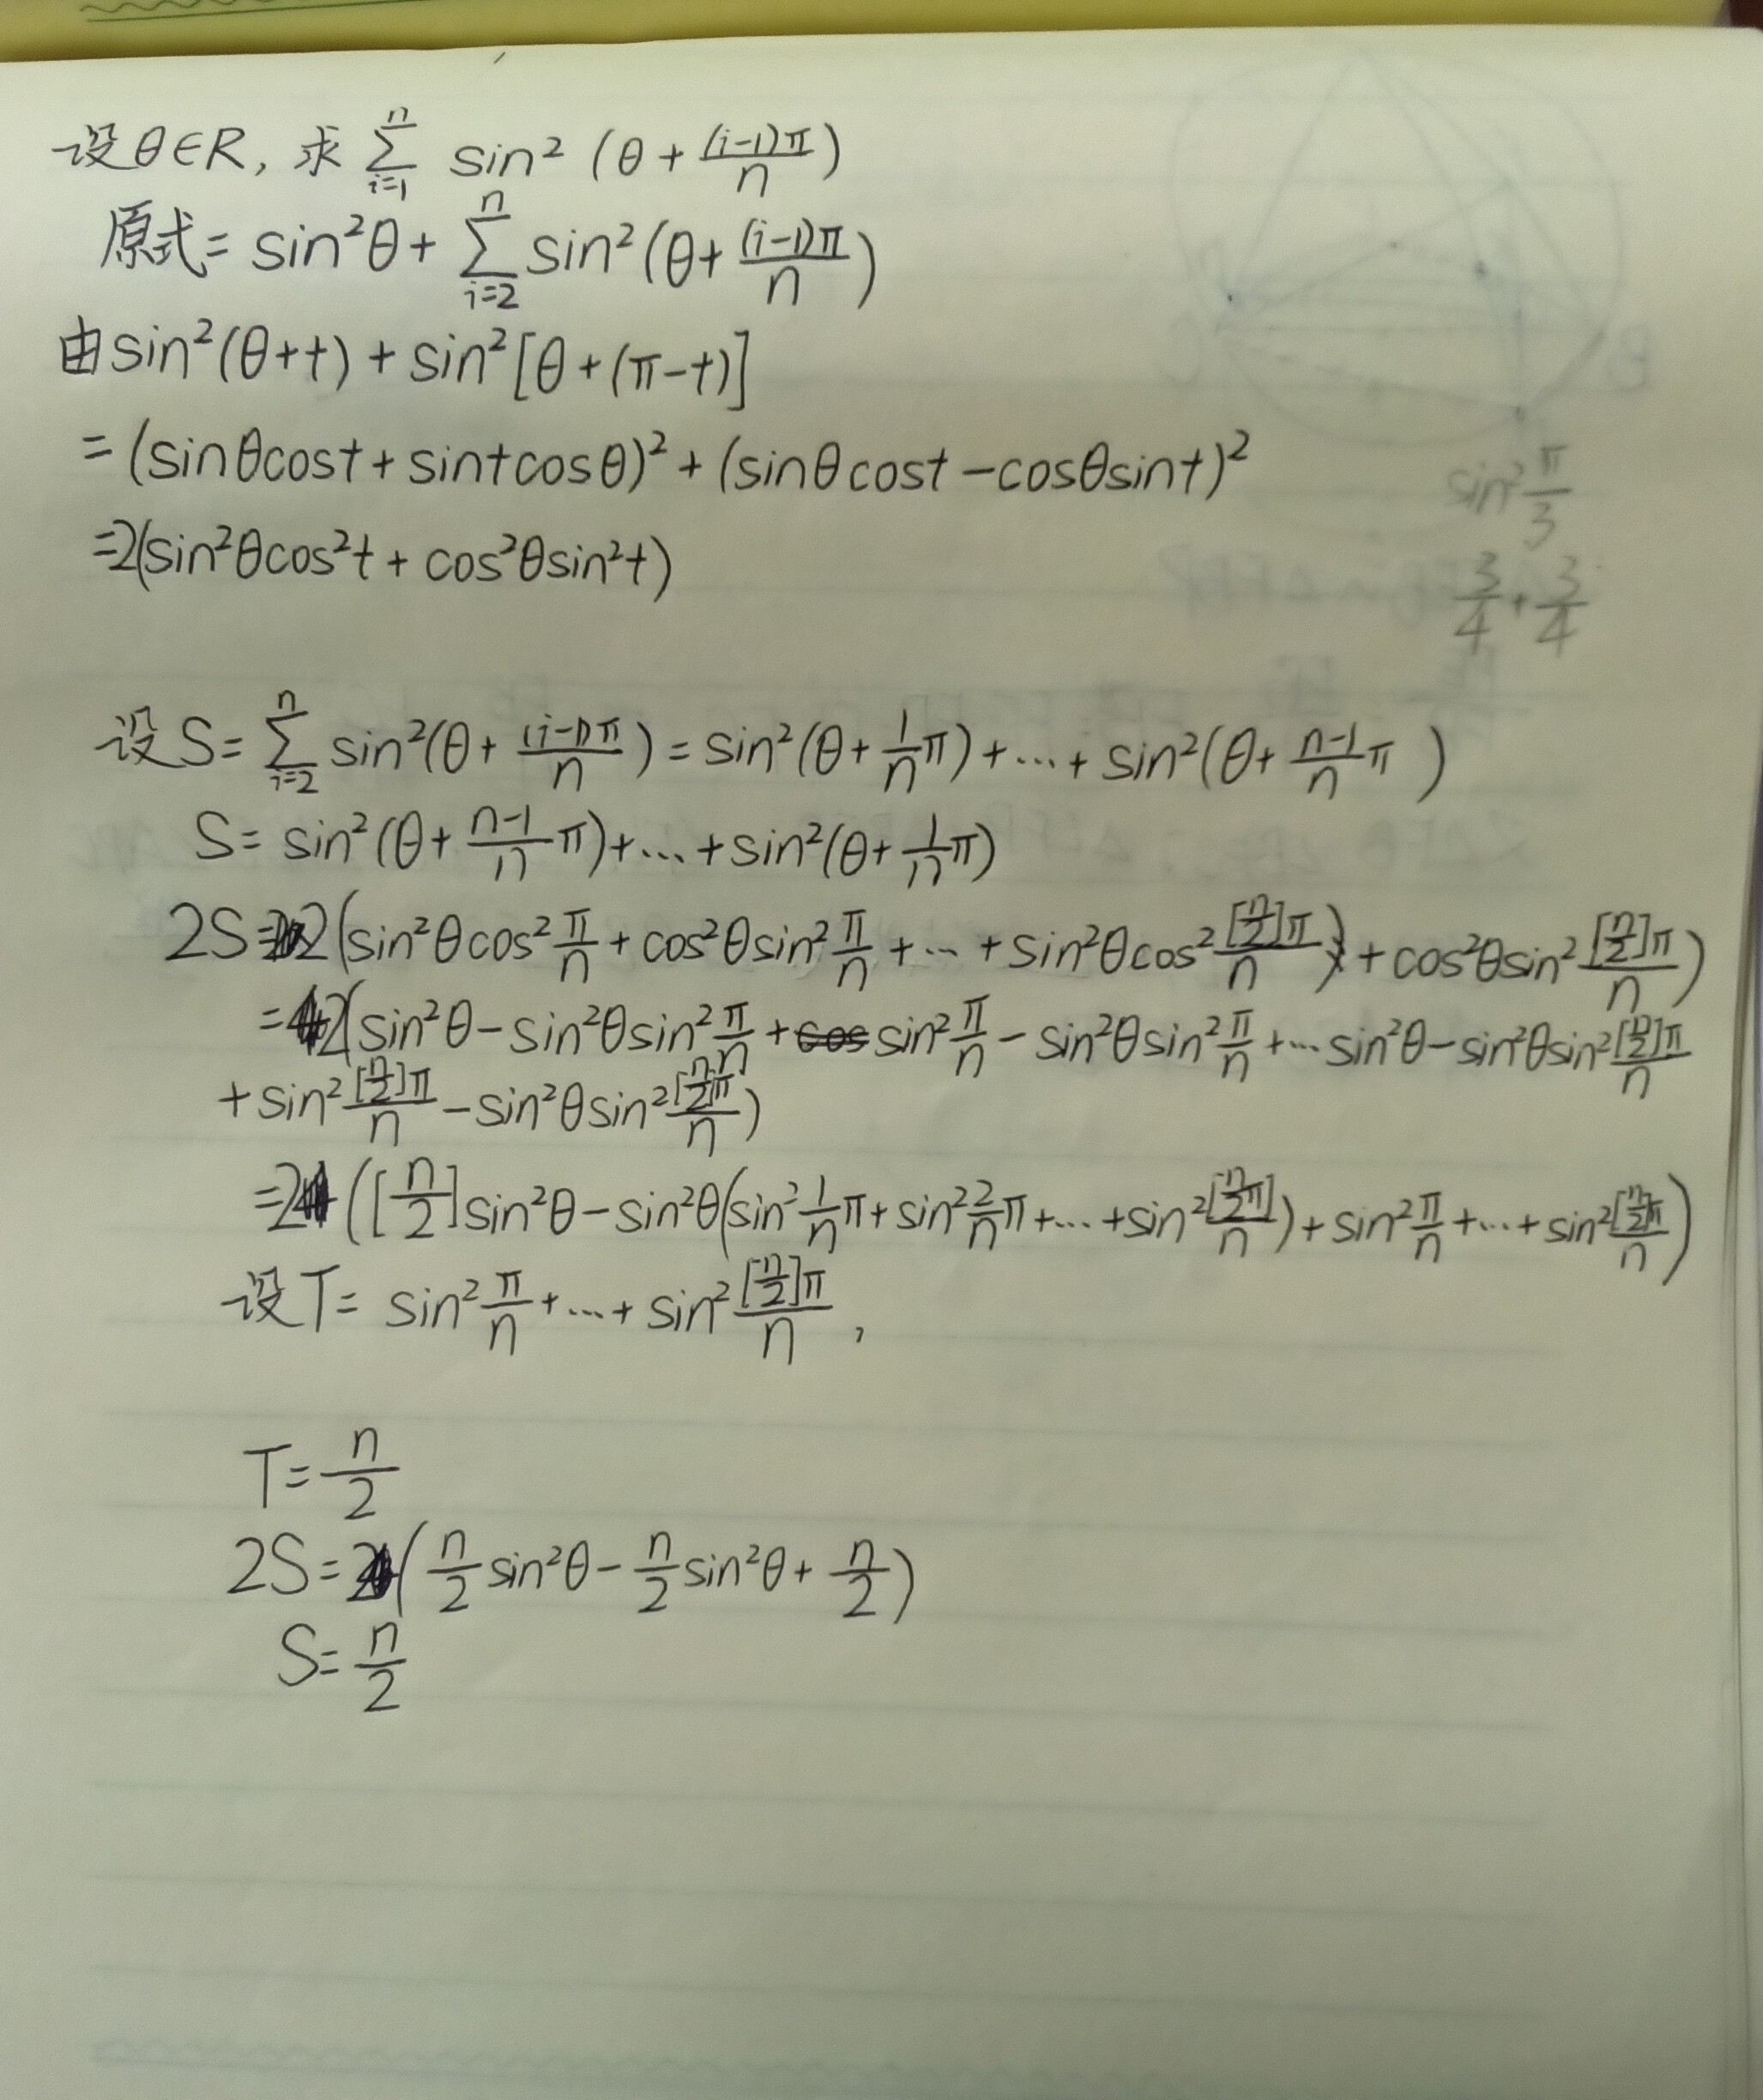 设θ∈R, 求 ∑_{i=1}^{n} sin²(θ+(i-1)π/n)
原式= sin²θ+ ∑_{i=2}^{n} sin²(θ+(i-1)π/n)
由sin²(θ+t) + sin²[θ+(π-t)]
= (sinθcost+sintcosθ)²+(sinθcost-cosθsint)²
=2(sin²θcos²t + cos²θsin²t)
sin² π/3
3/4 + 3/4
设S= ∑_{i=2}^{n} sin²(θ+ (i-1)π/n) = sin²(θ+ 1/n π)+…+ sin²(θ+ n-1/n π)
S= sin²(θ+ n-1/n π)+…+sin²(θ+ 1/n π)
2S=2(sin²θcos² π/n + cos²θsin² π/n +…+ sin²θcos² [n/2]π/n + cos²θsin² [n/2]π/n)
=2(sin²θ-sin²θsin² π/n + sin² π/n - sin²θsin² π/n +… sin²θ-sin²θsin² [n/2]π/n
+sin² [n/2]π/n - sin²θsin² [n/2]π/n)
=2([n/2]sin²θ-sin²θ(sin² 1/n π+sin² 2/n π+…+sin² [n/2π]/n)+sin² π/n +…+sin² [n/2]π/n)
设T= sin² π/n +…+ sin² [n/2]π/n ,
T= n/2
2S=2( n/2 sin²θ- n/2 sin²θ+ n/2 )
S= n/2